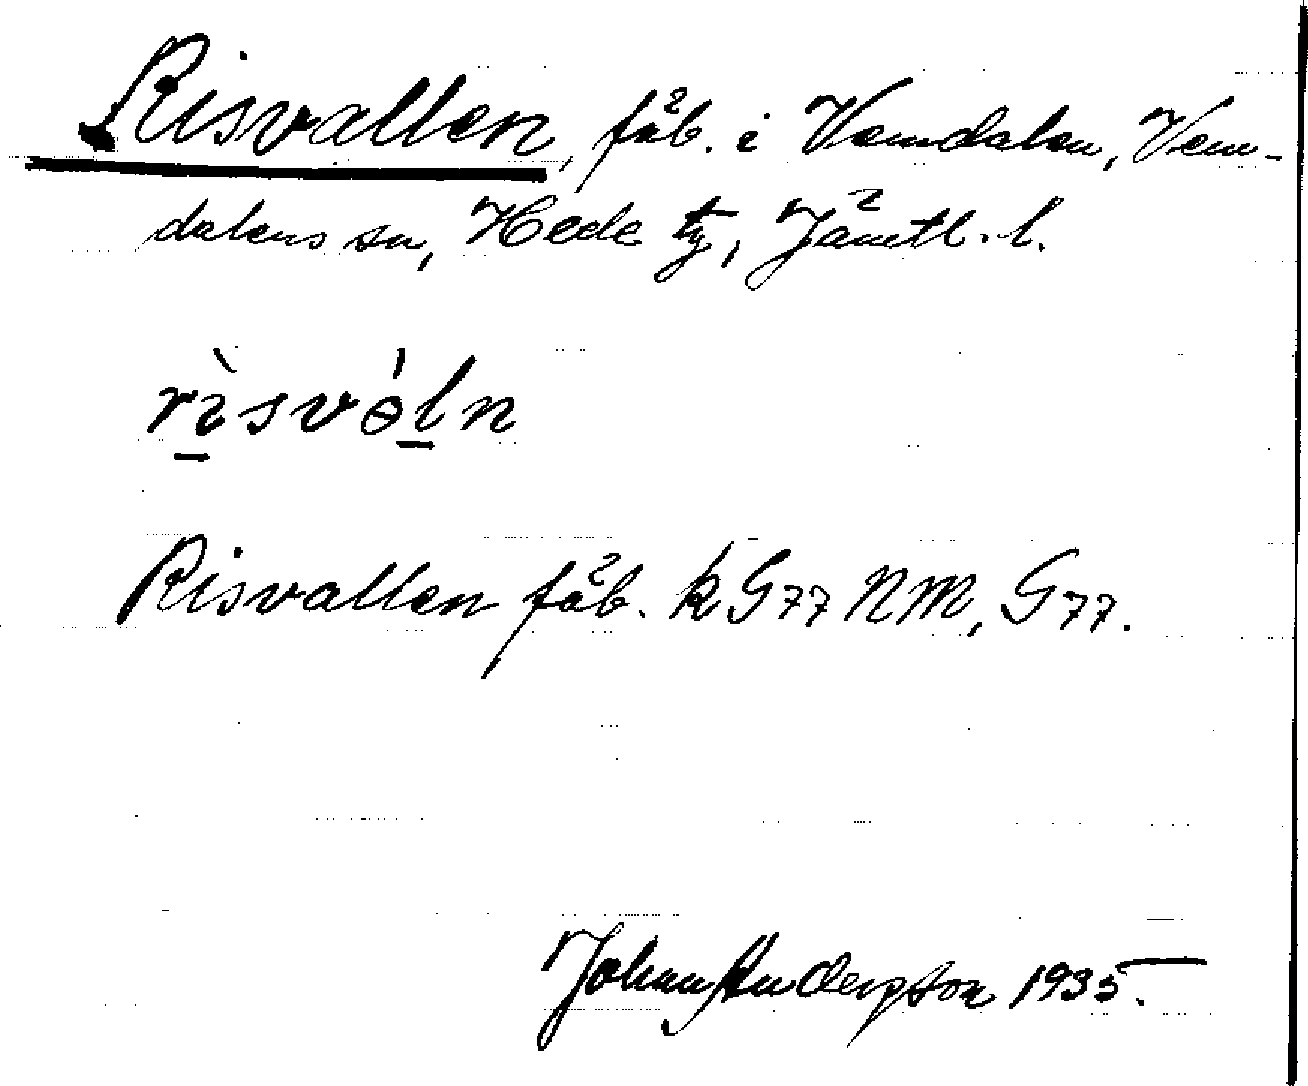 Risvallen, fäb. i Vemdalen, Vem-
dalens sn, Hede tg, Jämtl. l.
rìsvɵ́ln
Risvallen fäb. k G77 NM, G77.
Johan Andersson 1935.